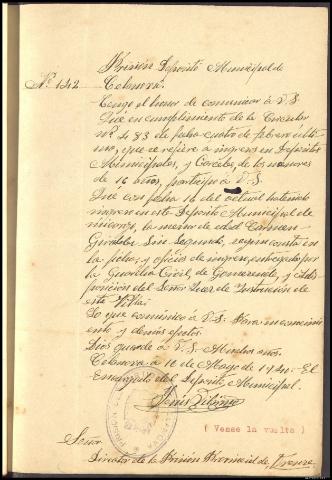 Prisión Depósito Municipal de
Nº 142 Celanova.
Tengo el honor de comunicar á V.S.
Que en cumplimiento de la Circular
nº 483 de fecha cuatro de febrero últi
mo, que se refiere a ingresos en Depósitos
Municipales, y Carceles, de los menores
de 16 años, participo á V.S.
Que con fecha 16 del actual ha tenido
ingreso en este Depósito Municipal de
mi cargo, la menor de edad Carmen
Sin Segundo, segun consta en
la ficha; y oficio de ingreso, entregado por
la Guardia Civil, de y á dis
posición del Señor Juez de Instrucción de
esta Villa.
Lo que comunico á V.S. Para su conocimi
ento y demás efectos.
Dios guarde á V.S. Muchos años.
Celanova a 16 de Mayo de 1940. El
Encargado del Depósito Municipal.
( Vease la vuelta )
Señor
Director de la Prisión Provincial de Orense.